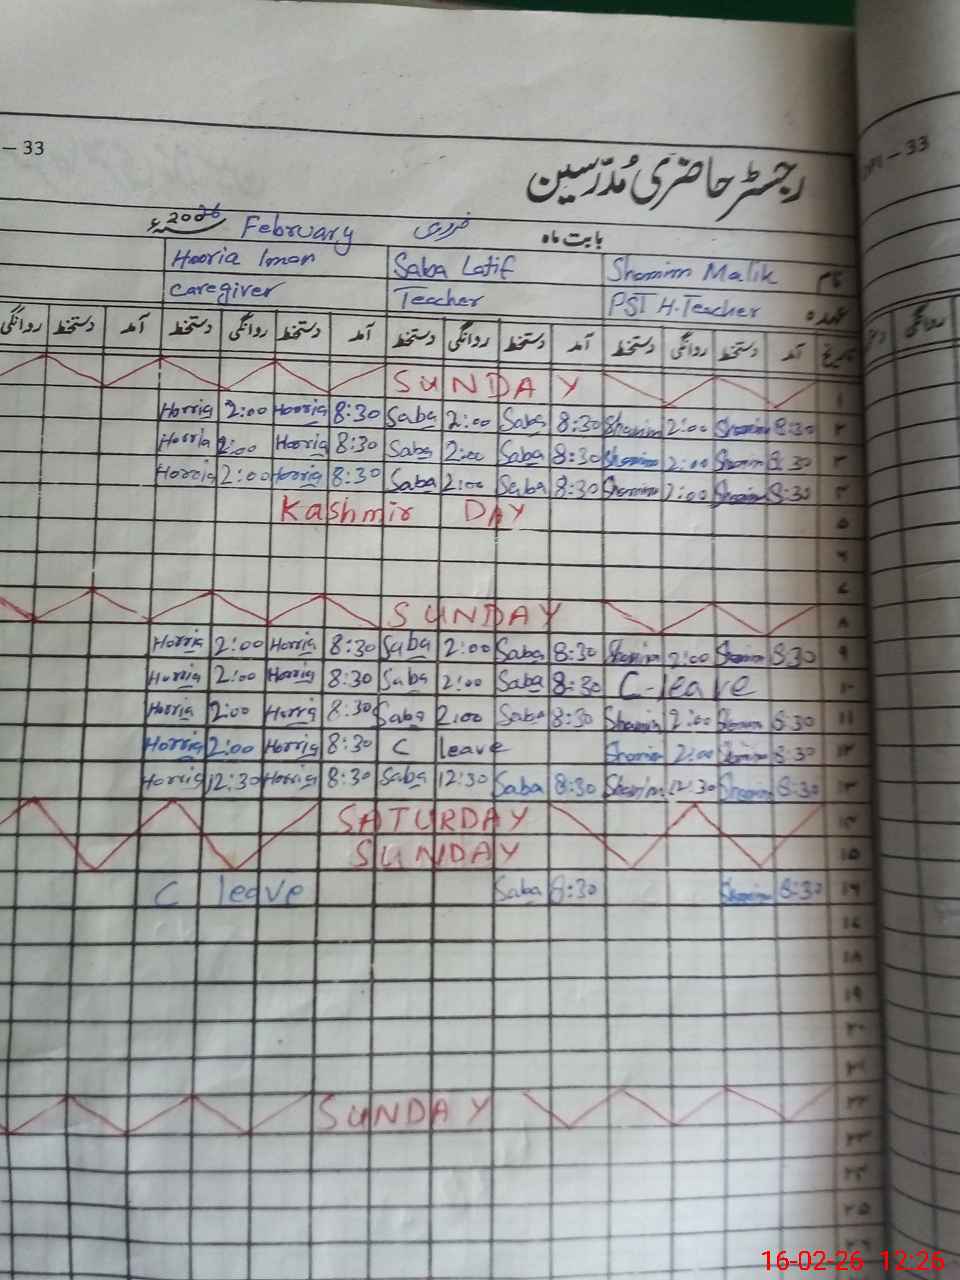 – 33
رجسٹر حاضری مُدرّسین
DPI – 33
بابت ماہ فروری February 2026ء
نام Shamim Malik Saba Latif Hooria Iman
عہدہ PST H.Teacher Teacher Caregiver
تاریخ آمد دستخط روانگی دستخط آمد دستخط روانگی دستخط آمد دستخط روانگی دستخط آمد دستخط روانگی
روانگی
۱ SUNDAY
۲ 8:30 Shamim 2:00 Shamim 8:30 Saba 2:00 Saba 8:30 Horria 2:00 Horria
۳ 8:30 Shamim 2:00 Shamim 8:30 Saba 2:00 Saba 8:30 Horria 2:00 Horria
8:30 Shamim 2:00 Shamim 8:30 Saba 2:00 Saba 8:30 Horria 2:00 Horria
۵ Kashmir DAY
۸ SUNDAY
۹ 8:30 Shamim 2:00 Shamim 8:30 Saba 2:00 Saba 8:30 Horria 2:00 Horria
۱۰ C-leave 8:30 Saba 2:00 Saba 8:30 Horria 2:00 Horria
۱۱ 8:30 Shamim 2:00 Shamim 8:30 Saba 2:00 Saba 8:30 Horria 2:00 Horria
۱۲ 8:30 Shamim 2:00 Shamim C leave 8:30 Horria 2:00 Horria
۱۳ 8:30 Shamim 12:30 Shamim 8:30 Saba 12:30 Saba 8:30 Horria 12:30 Horria
SATURDAY
۱۵ SUNDAY
8:30 Shamim 8:30 Saba C leave
۱۸
۱۹
۲۰
۲۱
۲۲ SUNDAY
۲۳
۲۵
16-02-26 12:26